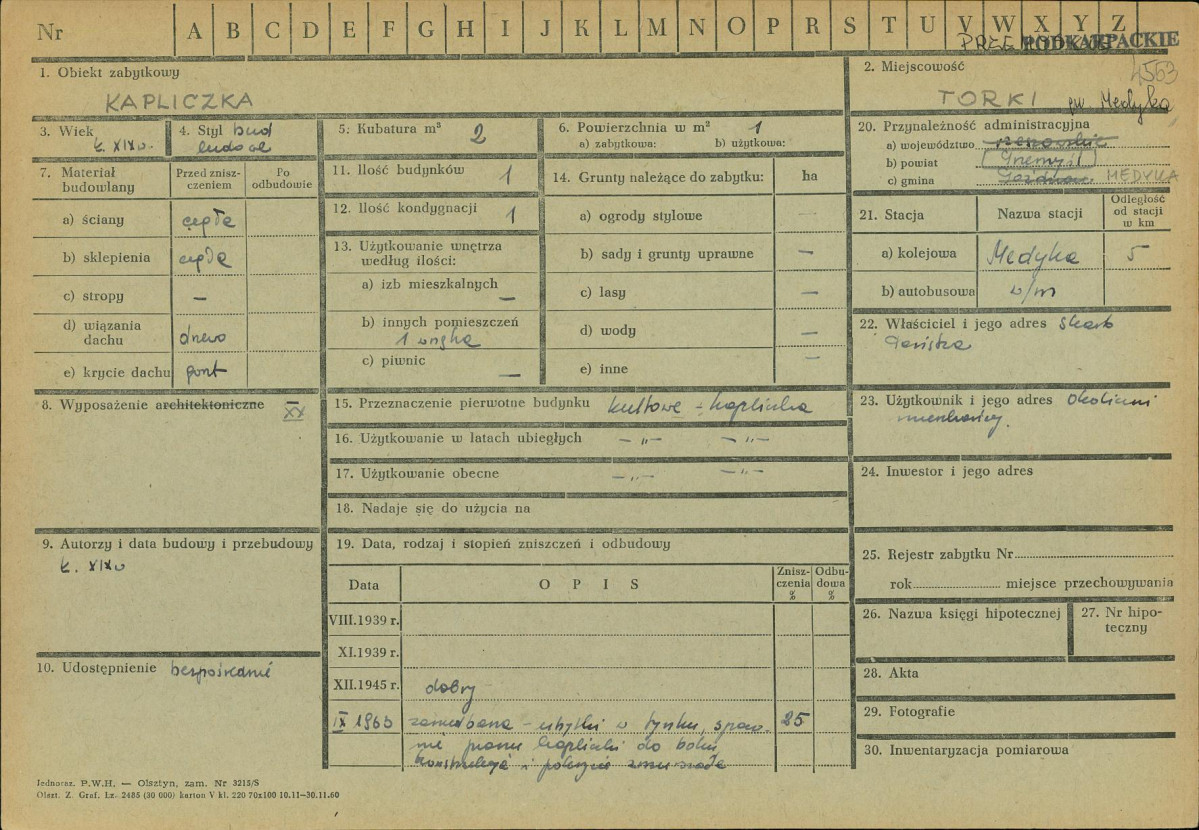 Nr A B C D E F G H I J K L M N O P R S T U V W X Y Z
PODKARPACKIE
4563
1. Obiekt zabytkowy
KAPLICZKA
2. Miejscowość
TORKI gm. Medyka
3. Wiek
k. XIX w.
4. Styl bud
ludowe
5. Kubatura m³ 2
6. Powierzchnia w m² 1
a) zabytkowa: b) użytkowa:
7. Materiał budowlany
Przed zniszczeniem
Po odbudowie
a) ściany cegła
b) sklepienia cegła
c) stropy —
d) wiązania dachu drewo
e) krycie dachu gont
8. Wyposażenie architektoniczne XX
9. Autorzy i data budowy i przebudowy
k. XIX w
10. Udostępnienie bezpośrednie
11. Ilość budynków 1
12. Ilość kondygnacji 1
13. Użytkowanie wnętrza
według ilości:
a) izb mieszkalnych —
b) innych pomieszczeń
1 wnęka
c) piwnic —
14. Grunty należące do zabytku: ha
a) ogrody stylowe —
b) sady i grunty uprawne —
c) lasy —
d) wody —
e) inne —
15. Przeznaczenie pierwotne budynku kultowe - kapliczka
16. Użytkowanie w latach ubiegłych — „ — — „ —
17. Użytkowanie obecne — „ — — „ —
18. Nadaje się do użycia na
19. Data, rodzaj i stopień zniszczeń i odbudowy
Data OPIS Zniszczenia % Odbudowa %
VIII.1939 r.
XI.1939 r.
XII.1945 r. dobry
IX 1963 zaniedbana - ubytki w tynku, 25
pionu kapliczki do boku
konstrukcja i pokrycie zmurszałe
20. Przynależność administracyjna
a) województwo rzeszowskie
b) powiat Przemyśl
c) gmina MEDYKA
21. Stacja Nazwa stacji Odległość od stacji w km
a) kolejowa Medyka 5
b) autobusowa w/m
22. Właściciel i jego adres Skarb
Państwa
23. Użytkownik i jego adres Okoliczni
mieszkańcy.
24. Inwestor i jego adres
25. Rejestr zabytku Nr
rok miejsce przechowywania
26. Nazwa księgi hipotecznej
27. Nr hipoteczny
28. Akta
29. Fotografie
30. Inwentaryzacja pomiarowa
Jednoraz. P.W.H. — Olsztyn, zam. Nr 3215/S
Olszt. Z. Graf. Lz. 2485 (30 000) karton V kl. 220 70x100 10.11—30.11.60